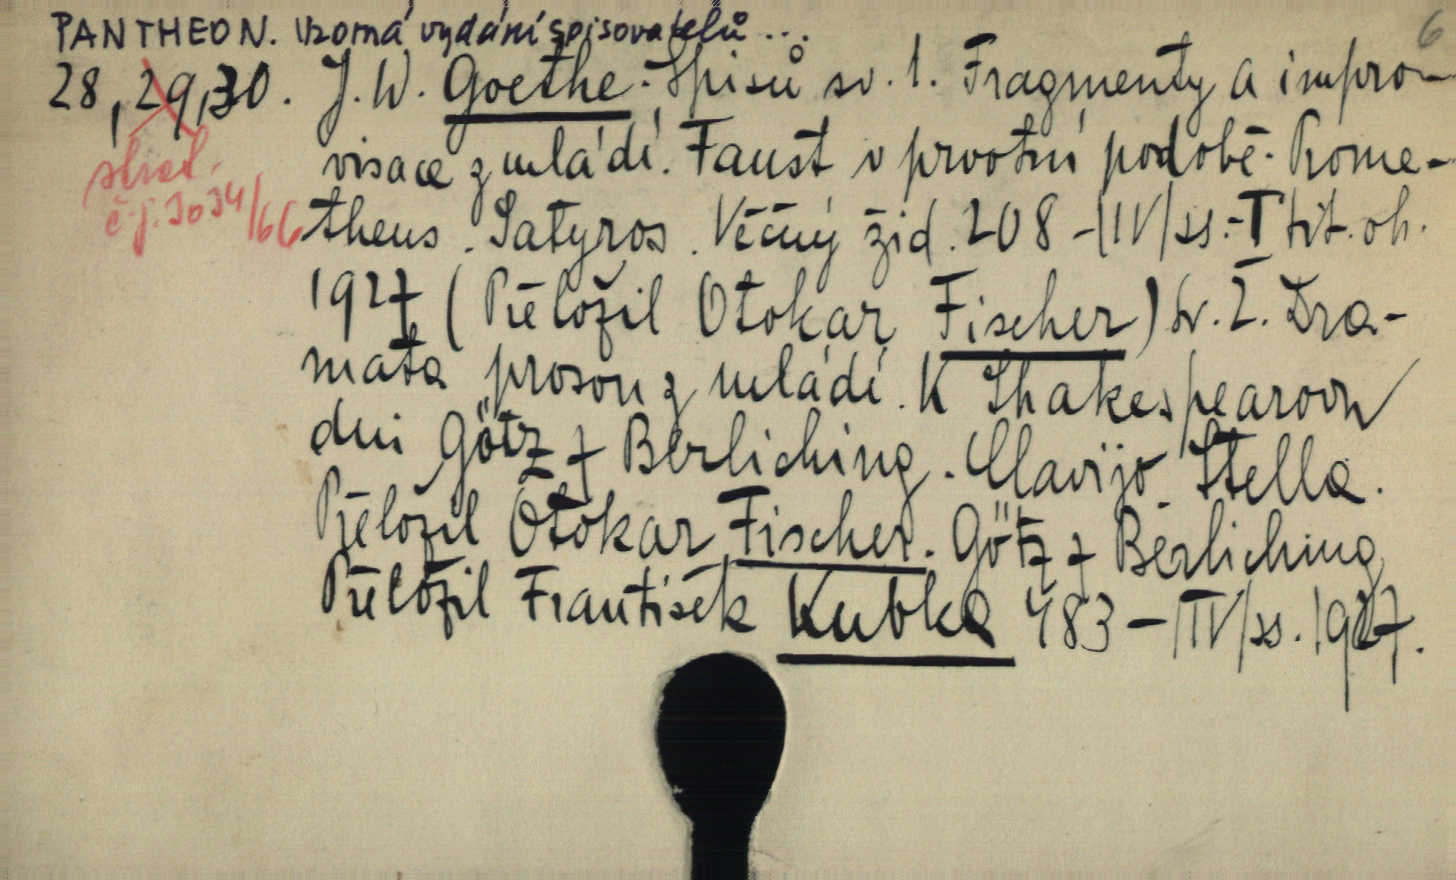 PANTHEON. Vzorná vydání spisovatelů ... 6
28, 29, 30. J. W. Goethe. Spisů sv. 1. Fragmenty a impro-
visace z mládí. Faust v prvotní podobě. Prome-
theus. Satyros. Věčný žid. 208 - /IV/ ss. - 1 tit. ob.
1927 (Přeložil Otokar Fischer) Sv. 2. Dra-
mata prosou z mládí. K Shakespearovu
dni Götz z Berliching. Clavijo. Stella.
Přeložil Otokar Fischer. Götz z Berliching
Přeložil František Kubka 483 - /IV/ ss. 1927.
č.j. 3034/66